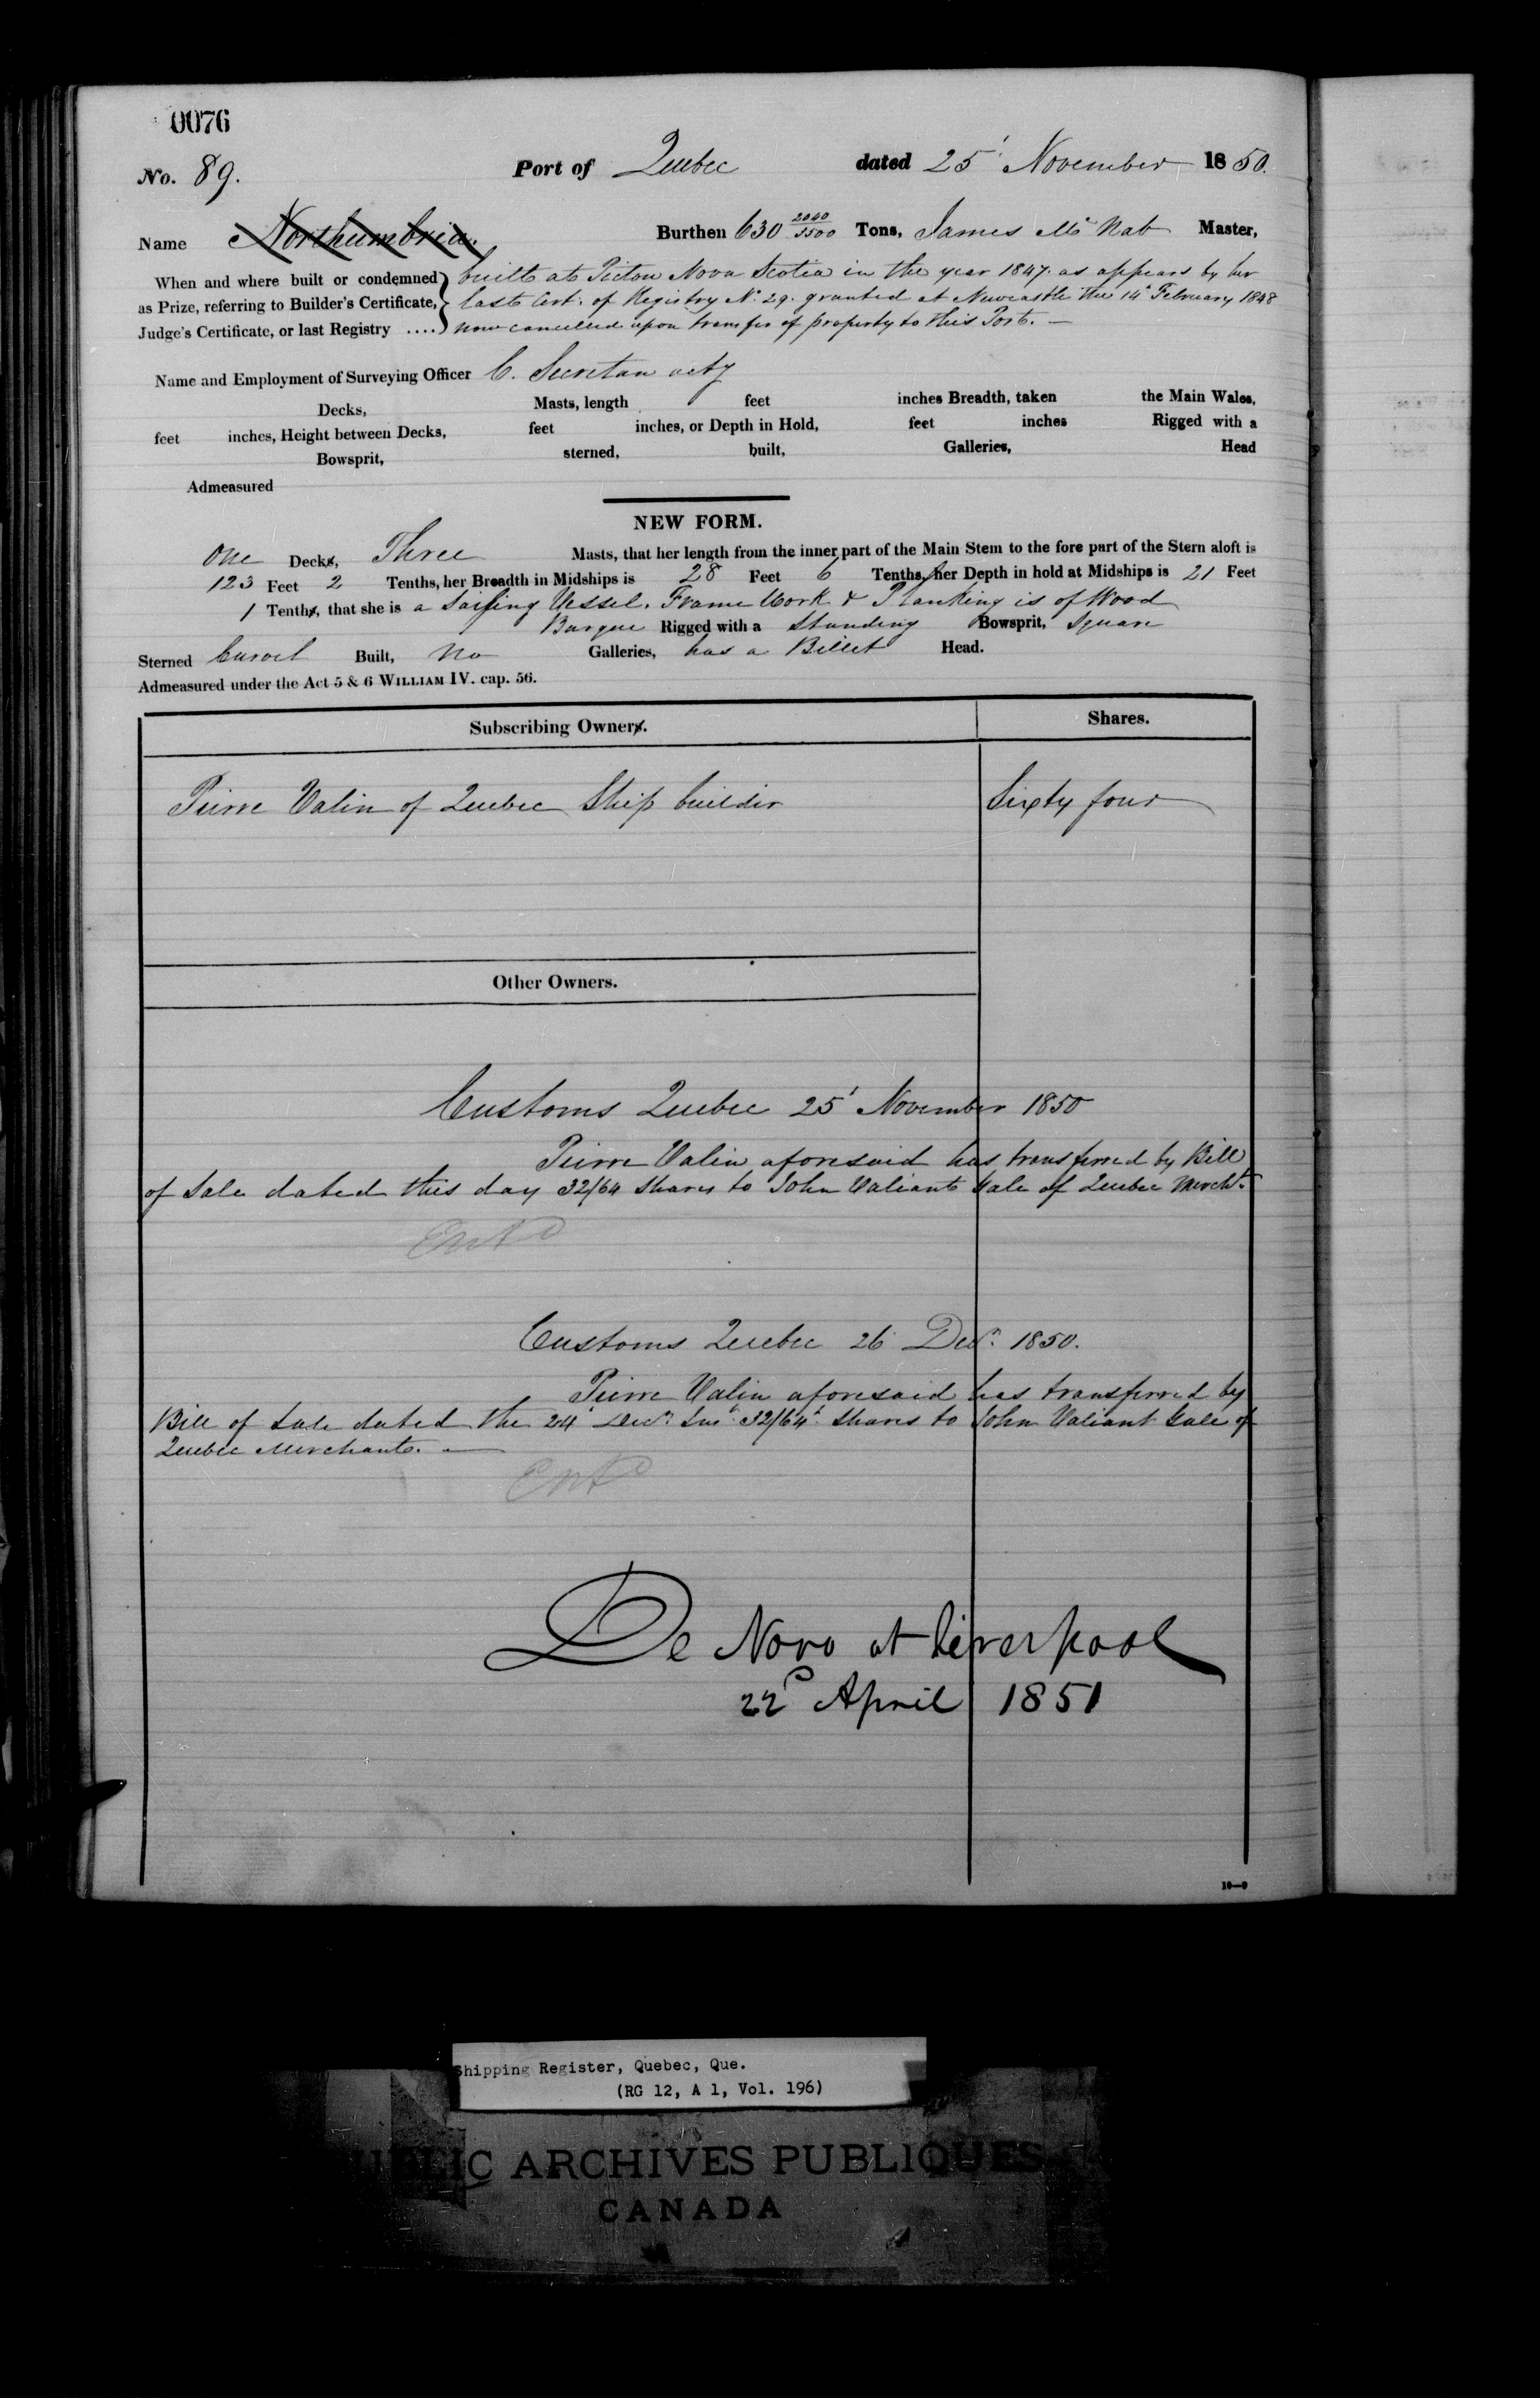 0076
No. 89. Port of Quebec dated 25' November 1850.
Name Northumbria. Burthen 630 2040/3500 Tons, James Mc Nab Master,
When and where built or condemned built at Pictou Nova Scotia in the year 1847. as appears by her
as Prize, referring to Builder's Certificate, last Cert. of Registry No. 29. granted at Newcastle the 14 February 1848
Judge's Certificate, or last Registry .... now cancelled upon transfer of property to this Port. —
Name and Employment of Surveying Officer C. Secretan actg
Decks, Masts, length feet inches Breadth, taken the Main Wales,
feet inches, Height between Decks, feet inches, or Depth in Hold, feet inches Rigged with a
Bowsprit, sterned, built, Galleries, Head
Admeasured
NEW FORM.
One Decks, Three Masts, that her length from the inner part of the Main Stem to the fore part of the Stern aloft is
123 Feet 2 Tenths, her Breadth in Midships is 28 Feet 6 Tenths, her Depth in hold at Midships is 21 Feet
1 Tenths, that she is a Sailing Vessel. Frame Work & Planking is of Wood
Barque Rigged with a Standing Bowsprit, Square
Sterned Carvel Built, No Galleries, has a Billet Head.
Admeasured under the Act 5 & 6 WILLIAM IV. cap. 56.
Subscribing Owners. Shares.
Pierre Valin of Quebec Ship builder Sixty four
Other Owners.
Customs Quebec 25' November 1850
Pierre Valin aforesaid has transferred by Bill
of Sale dated this day 32/64 Shares to John Valiant Gale of Quebec Mercht.
Entd
Customs Quebec 26 Decr. 1850.
Pierre Valin aforesaid has transferred by
Bill of Sale dated the 24' Decr. Inst. 32/64' Shares to John Valiant Gale of
Quebec Merchant. —
Entd
De Novo at Liverpool
22d April 1851
10—9
Shipping Register, Quebec, Que.
(RG 12, A 1, Vol. 196)
PUBLIC ARCHIVES PUBLIQUES
CANADA